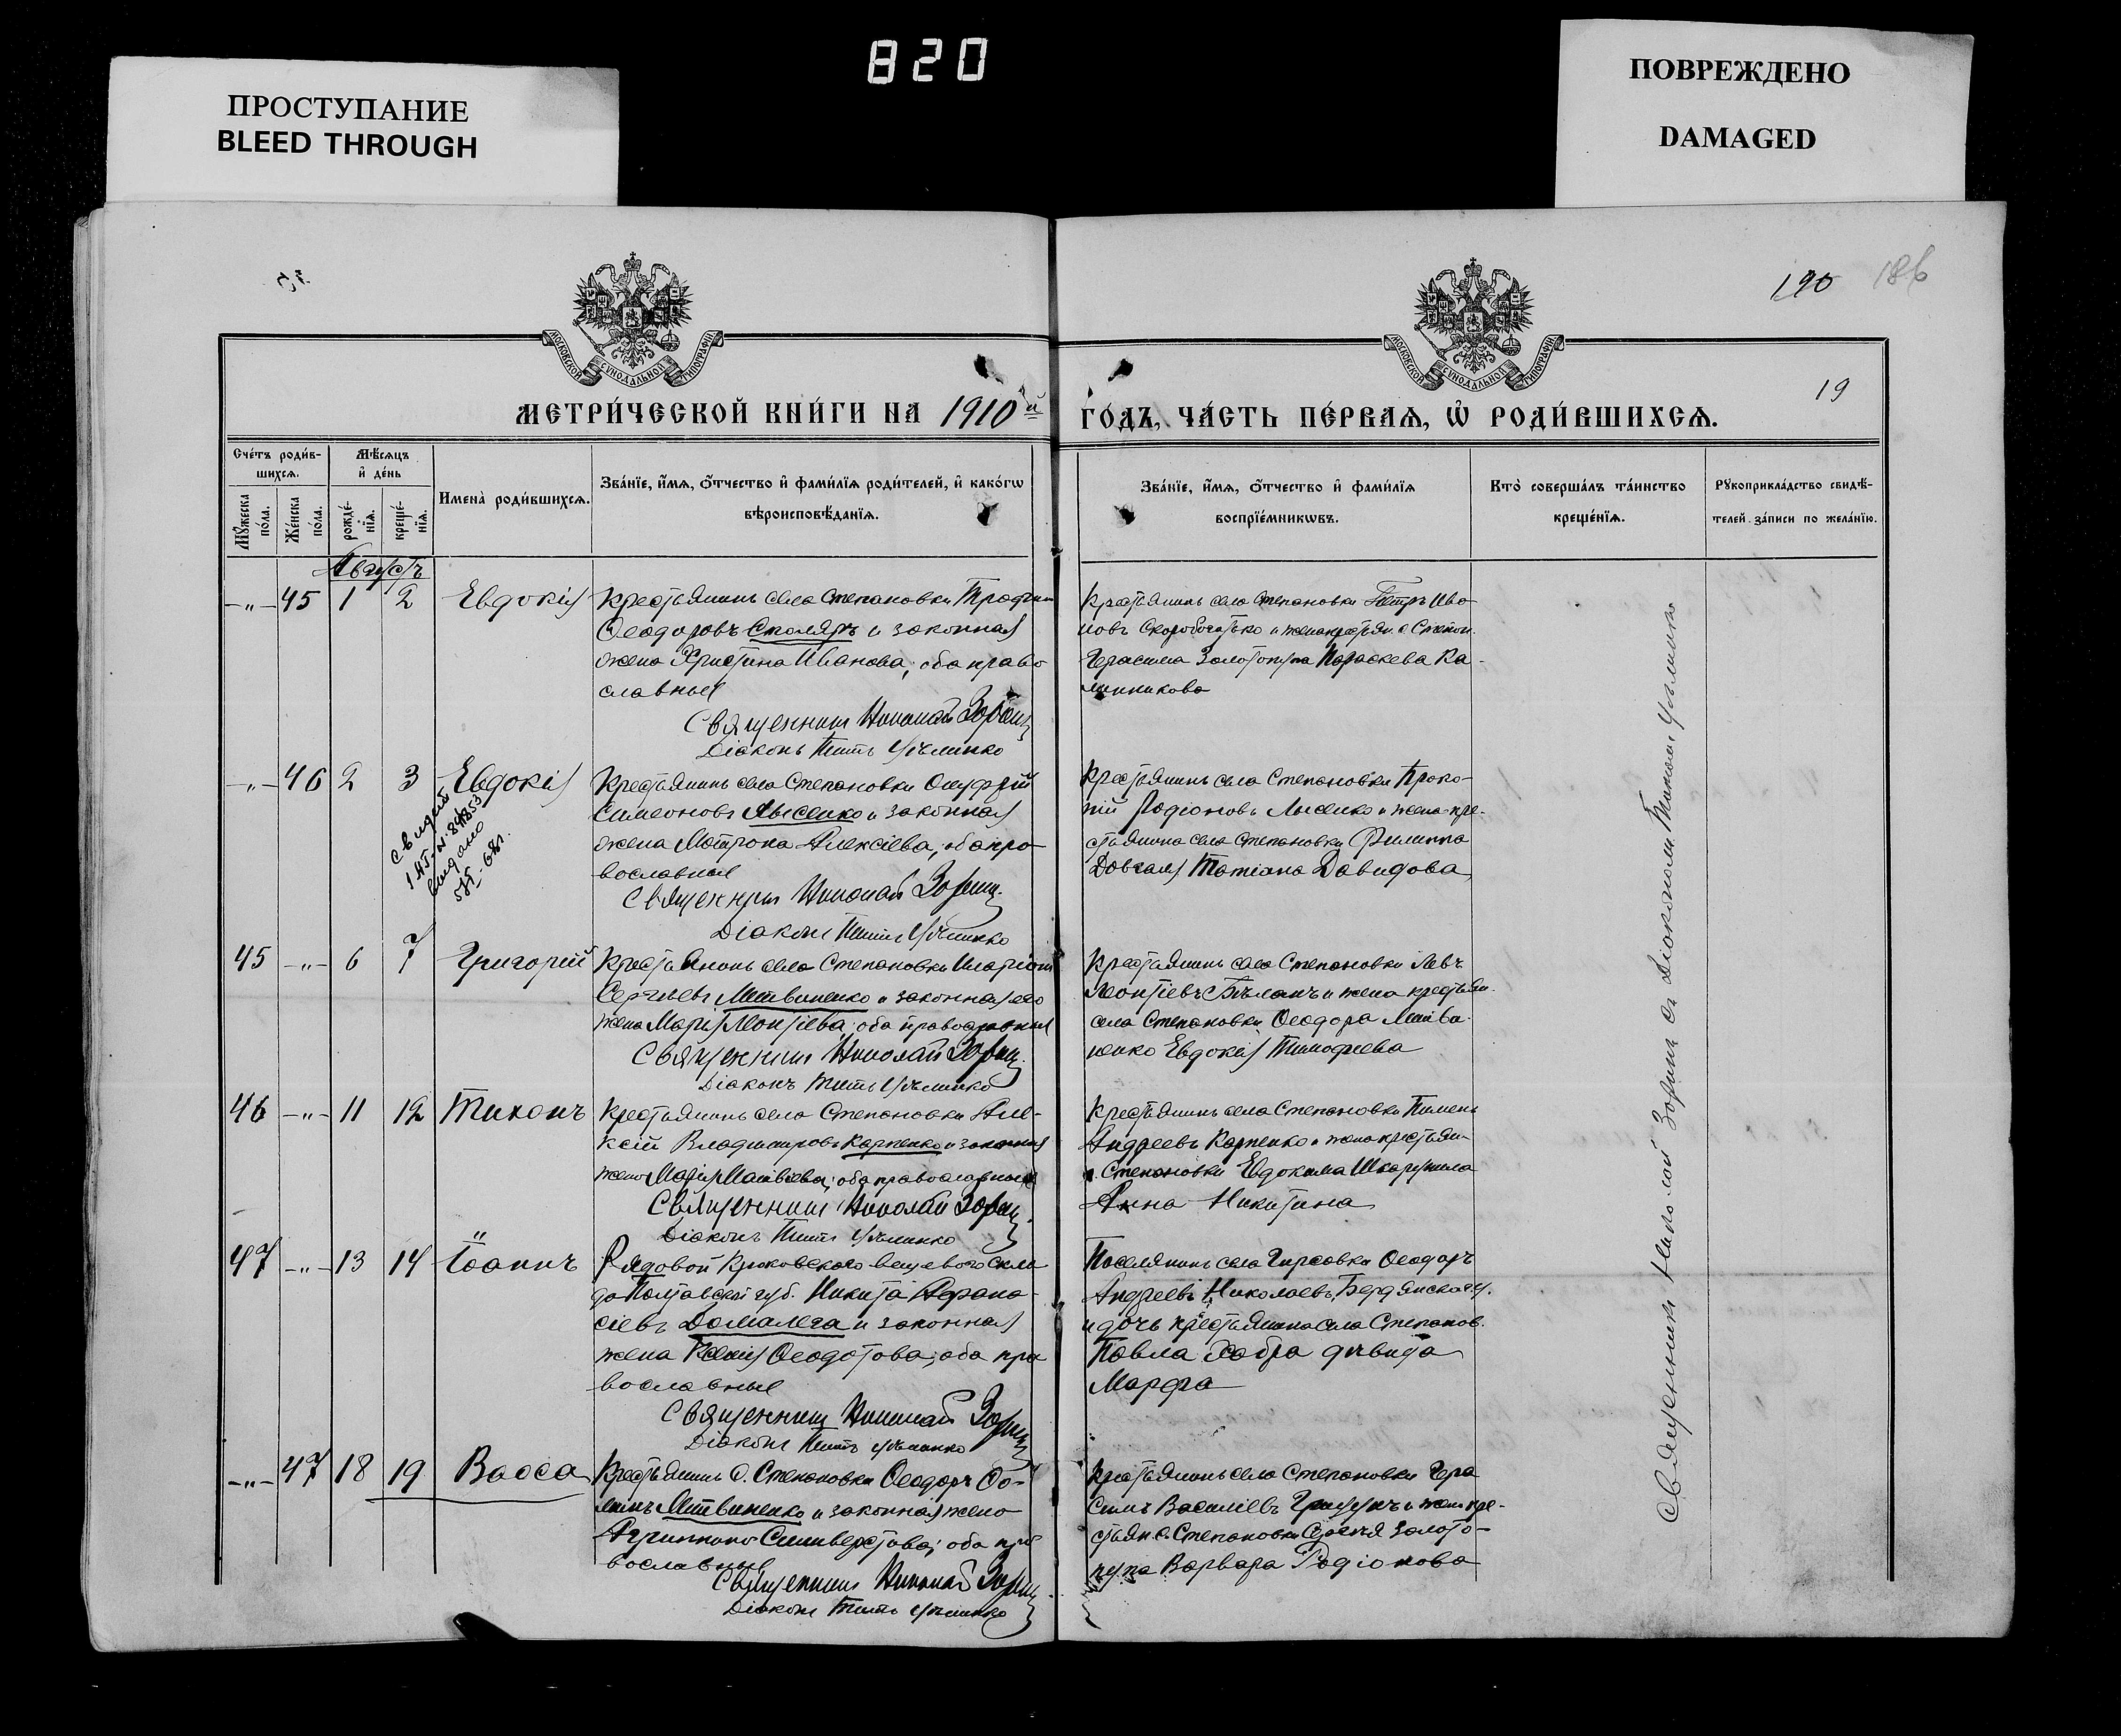 820
ПРОСТУПАНИЕ
BLEED THROUGH
ПОВРЕЖДЕНО
DAMAGED
190 186
19
МОСКОВСКОЙ СѴНОДАЛЬНОЙ ТИПОГРАФІИ
МОСКОВСКОЙ СѴНОДАЛЬНОЙ ТИПОГРАФІИ
МЕТРИ́ЧЕСКОЙ КНИ́ГИ НА 1910й ГО́ДЪ, ЧА́СТЬ ПЕ́РВАѦ, Ѡ РОДИ́ВШИХСѦ.
Сче́тъ роди́в-
шихсѧ.
Мꙋ́жеска по́ла.
Же́нска по́ла.
Мѣ́сѧцъ
и҆ де́нь
рожде́-
нїѧ.
креще́-
нїѧ.
Имена̀ роди́вшихсѧ.
Зва́нїе, и҆́мѧ, ѻ҆́тчество и҆ фами́лїѧ роди́телей, и҆ како́гѡ
вѣроисповѣ́данїѧ.
Зва́нїе, и҆́мѧ, ѻ҆́тчество и҆ фами́лїѧ
воспрїе́мникѡвъ.
Кто̀ соверша́лъ та́инство
креще́нїѧ.
Рꙋкоприкла́дство свидѣ́-
телей за́писи по жела́нїю.
Августъ
-"- 45 1 2 Евдокія
Крестьянинъ села Степановки Трофим
Ѳеодоровъ Столяръ и законная
жена Христина Иванова, оба право
славные
Священникъ Николай Зоринъ
Діаконъ Титъ
Крестьянинъ села Степановки Петръ Ива
новъ Скоробогатько и жена крестьян. с. Степан.
Герасима Золотопупа Параскева Ка-
линникова
-"- 46 2 3 Евдокія
свидет
выдано
68г.
Крестьянинъ села Степановки Онуфрій
Симеоновъ Лысенко и законная
жена Матрона Алексіева, оба пра-
вославные
Священникъ Николай Зоринъ
Діаконъ Титъ
Крестьянинъ села Степановки Проко-
пій Родіоновъ Лысенко и жена кре-
стьянина села Степановки Филиппа
Довгаля Татіана Давидова
45 -"- 6 7 Григорій
Крестьянинъ села Степановки Иларіонъ
Сергіевъ Литвиненко и законная его
жена Марія Леонтіева, оба православные
Священникъ Николай Зоринъ
Діаконъ Титъ
Крестьянинъ села Степановки Левъ
Леонтіевъ Бѣланъ и жена крестьян.
села Степановки Ѳеодора Литви-
ненко Евдокія Тимофеева
46 -"- 11 12 Тихонъ
Крестьянинъ села Степановки Але-
ксій Владимировъ Карпенко и законная
жена Марія Матвіева, оба православные
Священникъ Николай Зоринъ
Діаконъ Титъ
Крестьянинъ села Степановки Пименъ
Андреевъ Карпенко и жена крестьян-
с. Степановки Евдокима
Анна Никитина
47 -"- 13 14 Іоаннъ
Рядовой Крюковскаго вещевого скла
да Полтавской губ. Никита Афана-
сіевъ Домалега и законная
жена Ксенія Ѳеодотова, оба пра
вославные
Священникъ Николай Зоринъ
Діаконъ Титъ
Поселянинъ села Гирсовки Ѳеодоръ
Андреевъ Николаевъ, Бердянскаго у.
и дочь крестьянина села Степанов.
Павла Хабра дѣвица
Марфа
-"- 47 18 19 Васса
Крестьянинъ с. Степановки Ѳеодоръ Ѳо-
минъ Литвиненко и законная жена
Агриппина Сильверстова; оба пра
вославные
Священникъ Николай Зоринъ
Діаконъ Титъ
Крестьянинъ села Степановки Гера
симъ Василіевъ и жена кре-
стьян. с. Степановки Сергѣя Золото-
пупа Варвара Родіонова
Священникъ Николай Зоринъ съ Діакономъ Титомъ